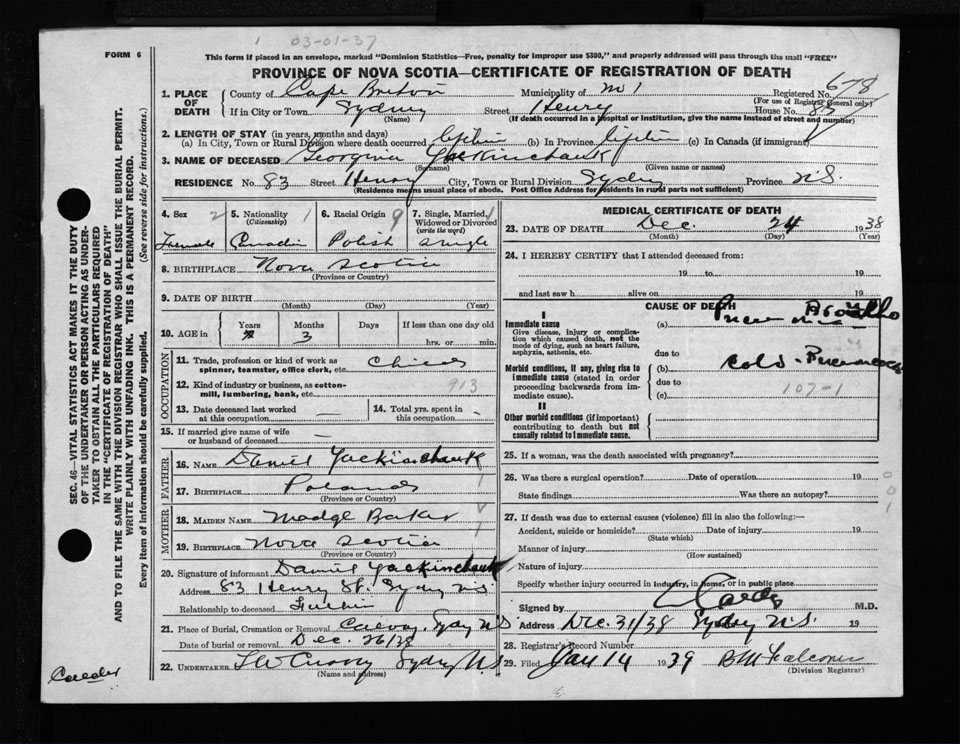 1 03-01-37
FORM 6
This form if placed in an envelope, marked "Dominion Statistics—Free, penalty for improper use $300," and properly addressed will pass through the mail "FREE"
PROVINCE OF NOVA SCOTIA—CERTIFICATE OF REGISTRATION OF DEATH
SEC. 46—VITAL STATISTICS ACT MAKES IT THE DUTY
OF THE UNDERTAKER OR PERSON ACTING AS UNDER-
TAKER TO OBTAIN ALL THE PARTICULARS REQUIRED
IN THE "CERTIFICATE OF REGISTRATION OF DEATH"
AND TO FILE THE SAME WITH THE DIVISION REGISTRAR WHO SHALL ISSUE THE BURIAL PERMIT.
WRITE PLAINLY WITH UNFADING INK. THIS IS A PERMANENT RECORD.
Every item of information should be carefully supplied. (See reverse side for instructions.)
1. PLACE OF DEATH County of Cape Breton Municipality of Registered No. 678
(For use of Registrar General only)
If in City or Town Sydney Street Henry House No. 83
(Name) (If death occurred in a hospital or institution, give the name instead of street and number)
2. LENGTH OF STAY (in years, months and days)
(a) In City, Town or Rural Division where death occurred lifetime (b) In Province lifetime (c) In Canada (if immigrant)
3. NAME OF DECEASED Georgina Yackinchauk
(Surname) (Given name or names)
RESIDENCE No. 83 Street Henry City, Town or Rural Division Sydney Province N.S.
(Residence means usual place of abode. Post Office Address for residents in rural parts not sufficient)
4. Sex 2 Female
5. Nationality (Citizenship) 1 Canadian
6. Racial Origin 9 Polish
7. Single, Married, Widowed or Divorced (write the word) 1 single
8. BIRTHPLACE Nova Scotia
(Province or Country)
9. DATE OF BIRTH
(Month) (Day) (Year)
10. AGE in Years Months 3 Days If less than one day hrs. or min.
OCCUPATION
11. Trade, profession or kind of work as spinner, teamster, office clerk, etc. Child
12. Kind of industry or business, as cotton-mill, lumbering, bank, etc. 913
13. Date deceased last worked at this occupation —
14. Total yrs. spent in this occupation —
15. If married give name of wife or husband of deceased —
FATHER
16. NAME Daniel Yackinchauk
17. BIRTHPLACE Poland
(Province or Country)
MOTHER
18. MAIDEN NAME Madge Baker
19. BIRTHPLACE Nova Scotia
(Province or Country)
20. Signature of informant Daniel Yackinchauk
Address 83 Henry St. Sydney N.S.
Relationship to deceased Father
21. Place of Burial, Cremation or Removal Sydney N.S.
Date of burial or removal Dec. 26/38
22. UNDERTAKER Sydney N.S.
(Name and address)
MEDICAL CERTIFICATE OF DEATH
23. DATE OF DEATH Dec. 24 1938
(Month) (Day) (Year)
24. I HEREBY CERTIFY that I attended deceased from:
19 to 19
and last saw h alive on 19
CAUSE OF DEATH
I
Immediate cause
Give disease, injury or complication which caused death, not the mode of dying, such as heart failure, asphyxia, asthenia, etc.
(a) Pneumonia Broncho
due to
Morbid conditions, if any, giving rise to immediate cause (stated in order proceeding backwards from immediate cause).
(b) Cold
due to 107-1
(c)
II
Other morbid conditions (if important) contributing to death but not causally related to immediate cause.
25. If a woman, was the death associated with pregnancy?
26. Was there a surgical operation? Date of operation 19
State findings Was there an autopsy?
001
27. If death was due to external causes (violence) fill in also the following:—
Accident, suicide or homicide? Date of injury 19
(State which)
Manner of injury
(How sustained)
Nature of injury
Specify whether injury occurred in industry, in home, or in public place
Signed by M.D.
Address Dec. 31/38 Sydney N.S. 19
28. Registrar's Record Number
29. Filed Jan 14 1939 B M Falconer
(Division Registrar)